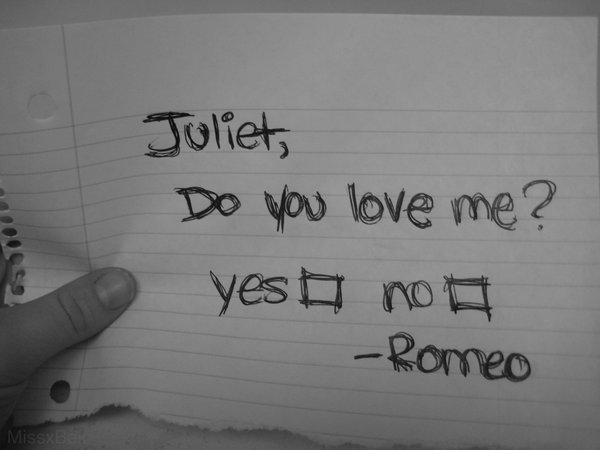 Juliet,
Do you love me?
yes □ no □
-Romeo